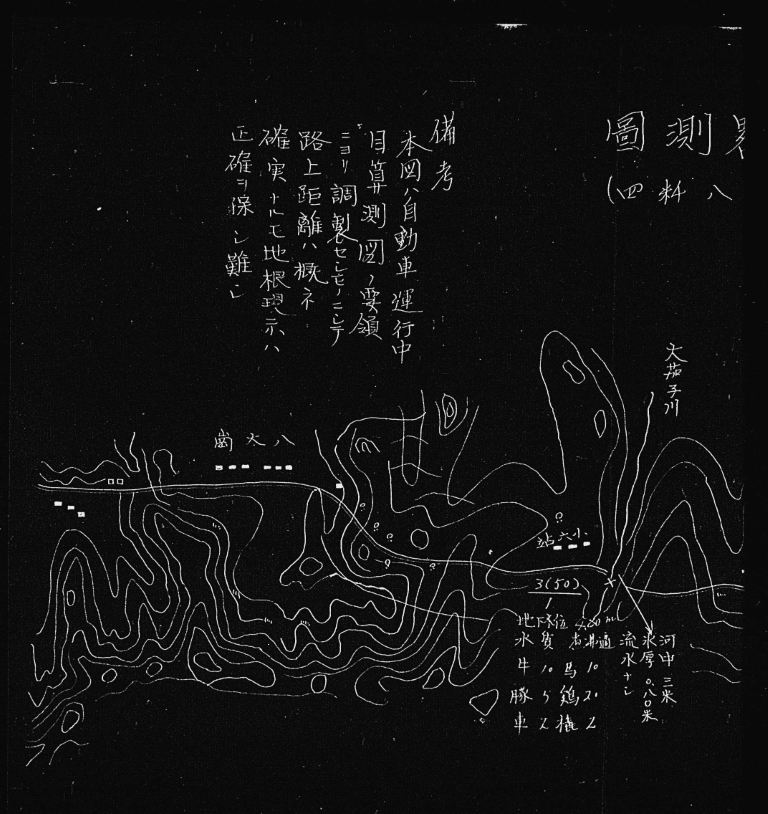 測圖
八料四
備考
本図ハ自動車運行中
目算測図ノ要領
ニヨリ調製セシモノニシテ
路上距離ハ概ネ
確実ナルモ地根現示ハ
正確ヲ保シ難シ
大茄子川
八大崗
小六站
3(50)
地下水位
水質 適
牛 10 馬 10
豚 5 鶏 20
車 2 橇 2
河巾三米
氷厚0.80米
流水ナシ